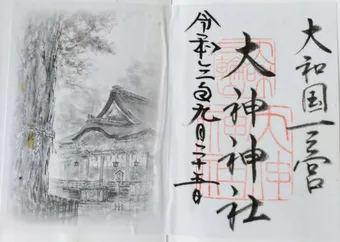 大和国一之宮
大神神社
令和三年九月二十五日